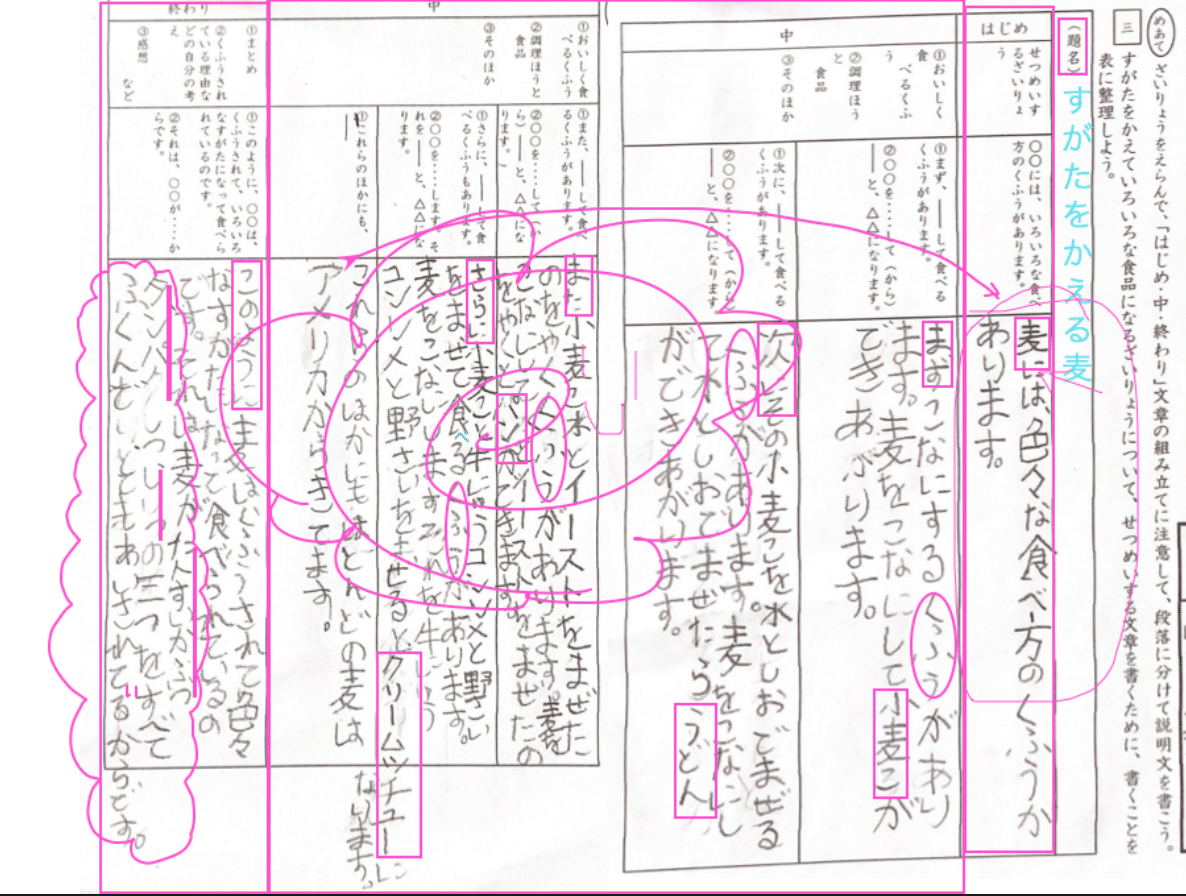 めあて ざいりょうをえらんで、「はじめ・中・終わり」文章の組み立てに注意して、段落に分けて説明文を書こう。
三 すがたをかえていろいろな食品になるざいりょうについて、せつめいする文章を書くために、書くことを
表に整理しよう。
(題名) すがたをかえる麦
はじめ
せつめいす
るざいりょ
う
〇〇には、いろいろな食べ
方のくふうがあります。
麦には、色々な食べ方のくふうが
あります。
中
①おいしく
食べるくふ
う
②調理ほう
と
食品
③そのほか
①まず、――して食べる
くふうがあります。
②〇〇を‥‥して(から)
――と、△△になります。
まずこなにするくふうがあり
ます。麦をこなにして小麦こが
できあがります。
①次に、――して食べる
くふうがあります。
②〇〇を‥‥して(から)
――と、△△になります。
次にその小麦こを水としおでまぜる
くふうがあります。麦をこなにし
て水としおでまぜたらうどん
ができあがります。
中
①おいしく食
べるくふう
②調理ほうと
食品
③そのほか
①また、――して食べ
るくふうがあります。
②〇〇を‥‥して(か
ら)――と、△△にな
ります。
また小麦こ水とイーストをまぜた
のをやくくふうがあります。麦を
こなにして水とイーストをまぜたの
をやくとパンができます。
①さらに、――して食
べるくふうもあります。
②〇〇を‥‥します。そ
れを――と、△△にな
ります。
さらに小麦こと牛にゅうコンソメと野さい
をまぜて食べるくふうがあります。
麦をこなにします。それを牛にゅう
コンソメと野さいをまぜるとクリームシチューに
なります。
①これらのほかにも、
――
これらのほかにもほとんどの麦は
アメリカからきてます。
終わり
①まとめ
②くふうされ
ている理由な
どの自分の考
え
③感想
など
①このように、〇〇は、
くふうされて、いろいろ
なすがたになって食べら
れているのです。
②それは、〇〇が‥‥か
らです。
このように麦はくふうされて色々
なすがたになって食べられているの
です。それは麦がたんすいかぶつ
タンパクしつ
の三つをすべて
ふくんでいてとてもあいされてるからです。